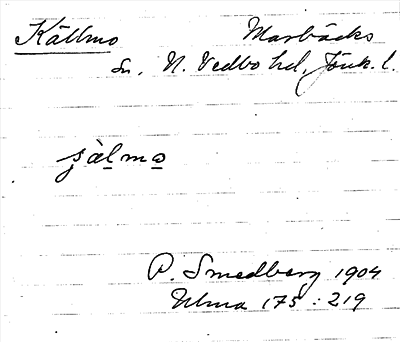 Källmo Marbäcks
Sn, N. Vedbo hd, Jönk. l.
sälmo
P. Smedberg 1904
Ulma 175 : 219